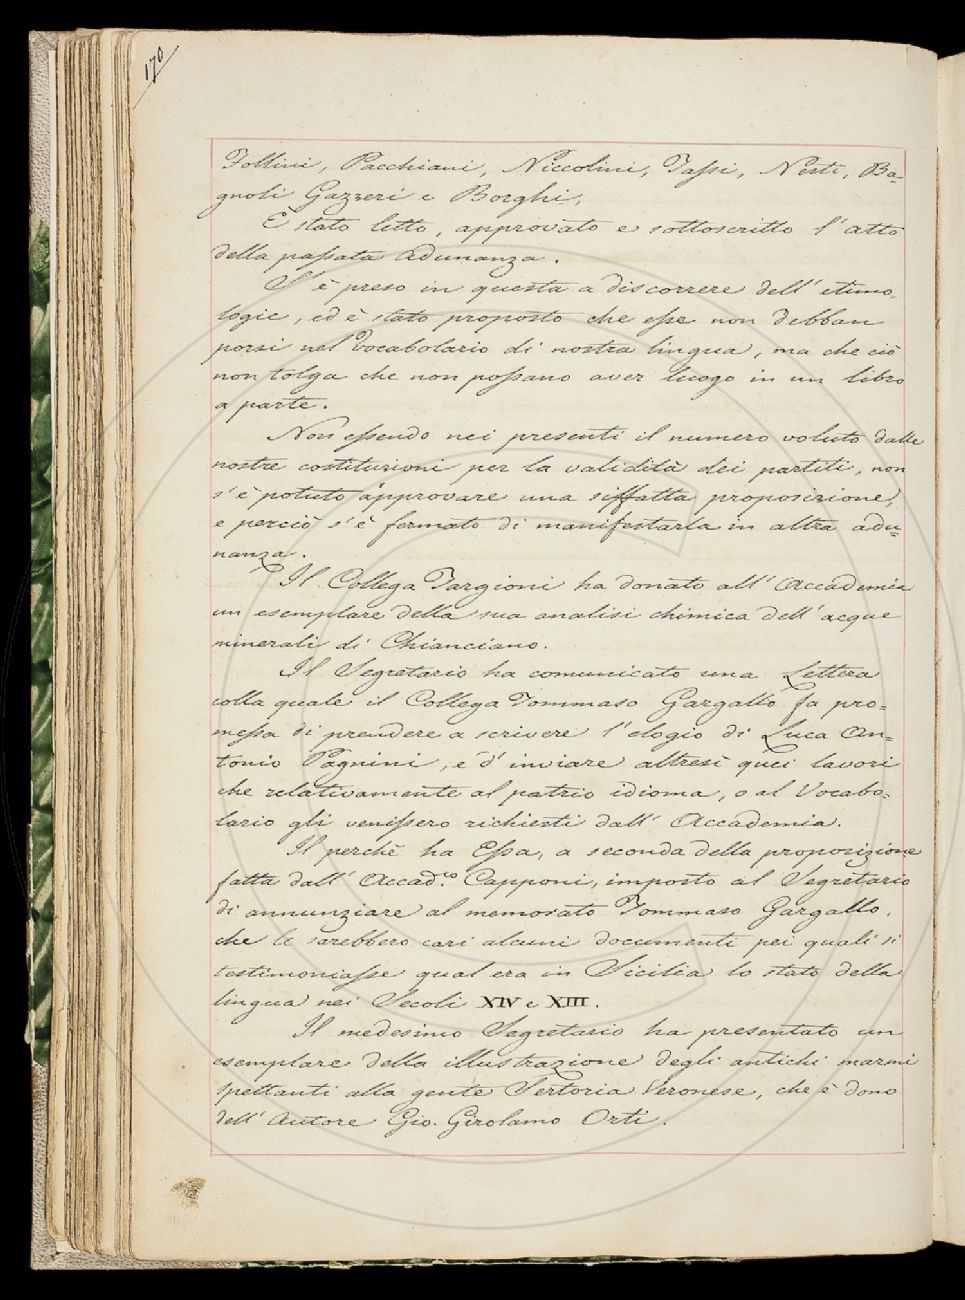 170
Follini, Pacchiani, Niccolini, Tassi, Nesti, Ba-
gnoli Gazzeri e Borghi.
E stato letto, approvato e sottoscritto l'atto
della passata adunanza.
S'è preso in questa a discorrere dell'etimo=
logie, ed è stato proposto che esse non debban
porsi nel Vocabolario di nostra lingua, ma che ciò
non tolga che non possano aver luogo in un libro
a parte.
Non essendo nei presenti il numero voluto dalle
nostre costituzioni per la validità dei partiti, non
s'è potuto approvare una siffatta proposizione,
e perciò s'è fermato di manifestarla in altra adu=
nanza.
Il Collega Targioni ha donato all'Accademia
un esemplare della sua analisi chimica dell'acque
minerali di Chianciano.
Il Segretario ha comunicato una Lettera
colla quale il Collega Tommaso Gargallo fa pro=
messa di prendere a scrivere l'elogio di Luca An=
tonio Pagnini, e d'inviare altresì quei lavori
che relativamente al patrio idioma, o al Vocabo=
lario gli venissero richiesti dall'Accademia.
Il perchè ha Essa, a seconda della proposizione
fatta dall'Accad.co Capponi, imposto al Segretario
di annunziare al memorato Tommaso Gargallo,
che le sarebbero cari alcuni documenti pei quali si
testimoniasse qual era in Sicilia lo stato della
lingua nei Secoli XIV e XIII.
Il medesimo Segretario ha presentato un
esemplare della illustrazione degli antichi marmi
spettanti alla gente Sertoria Veronese, che è dono
dell'Autore Gio. Girolamo Orti.